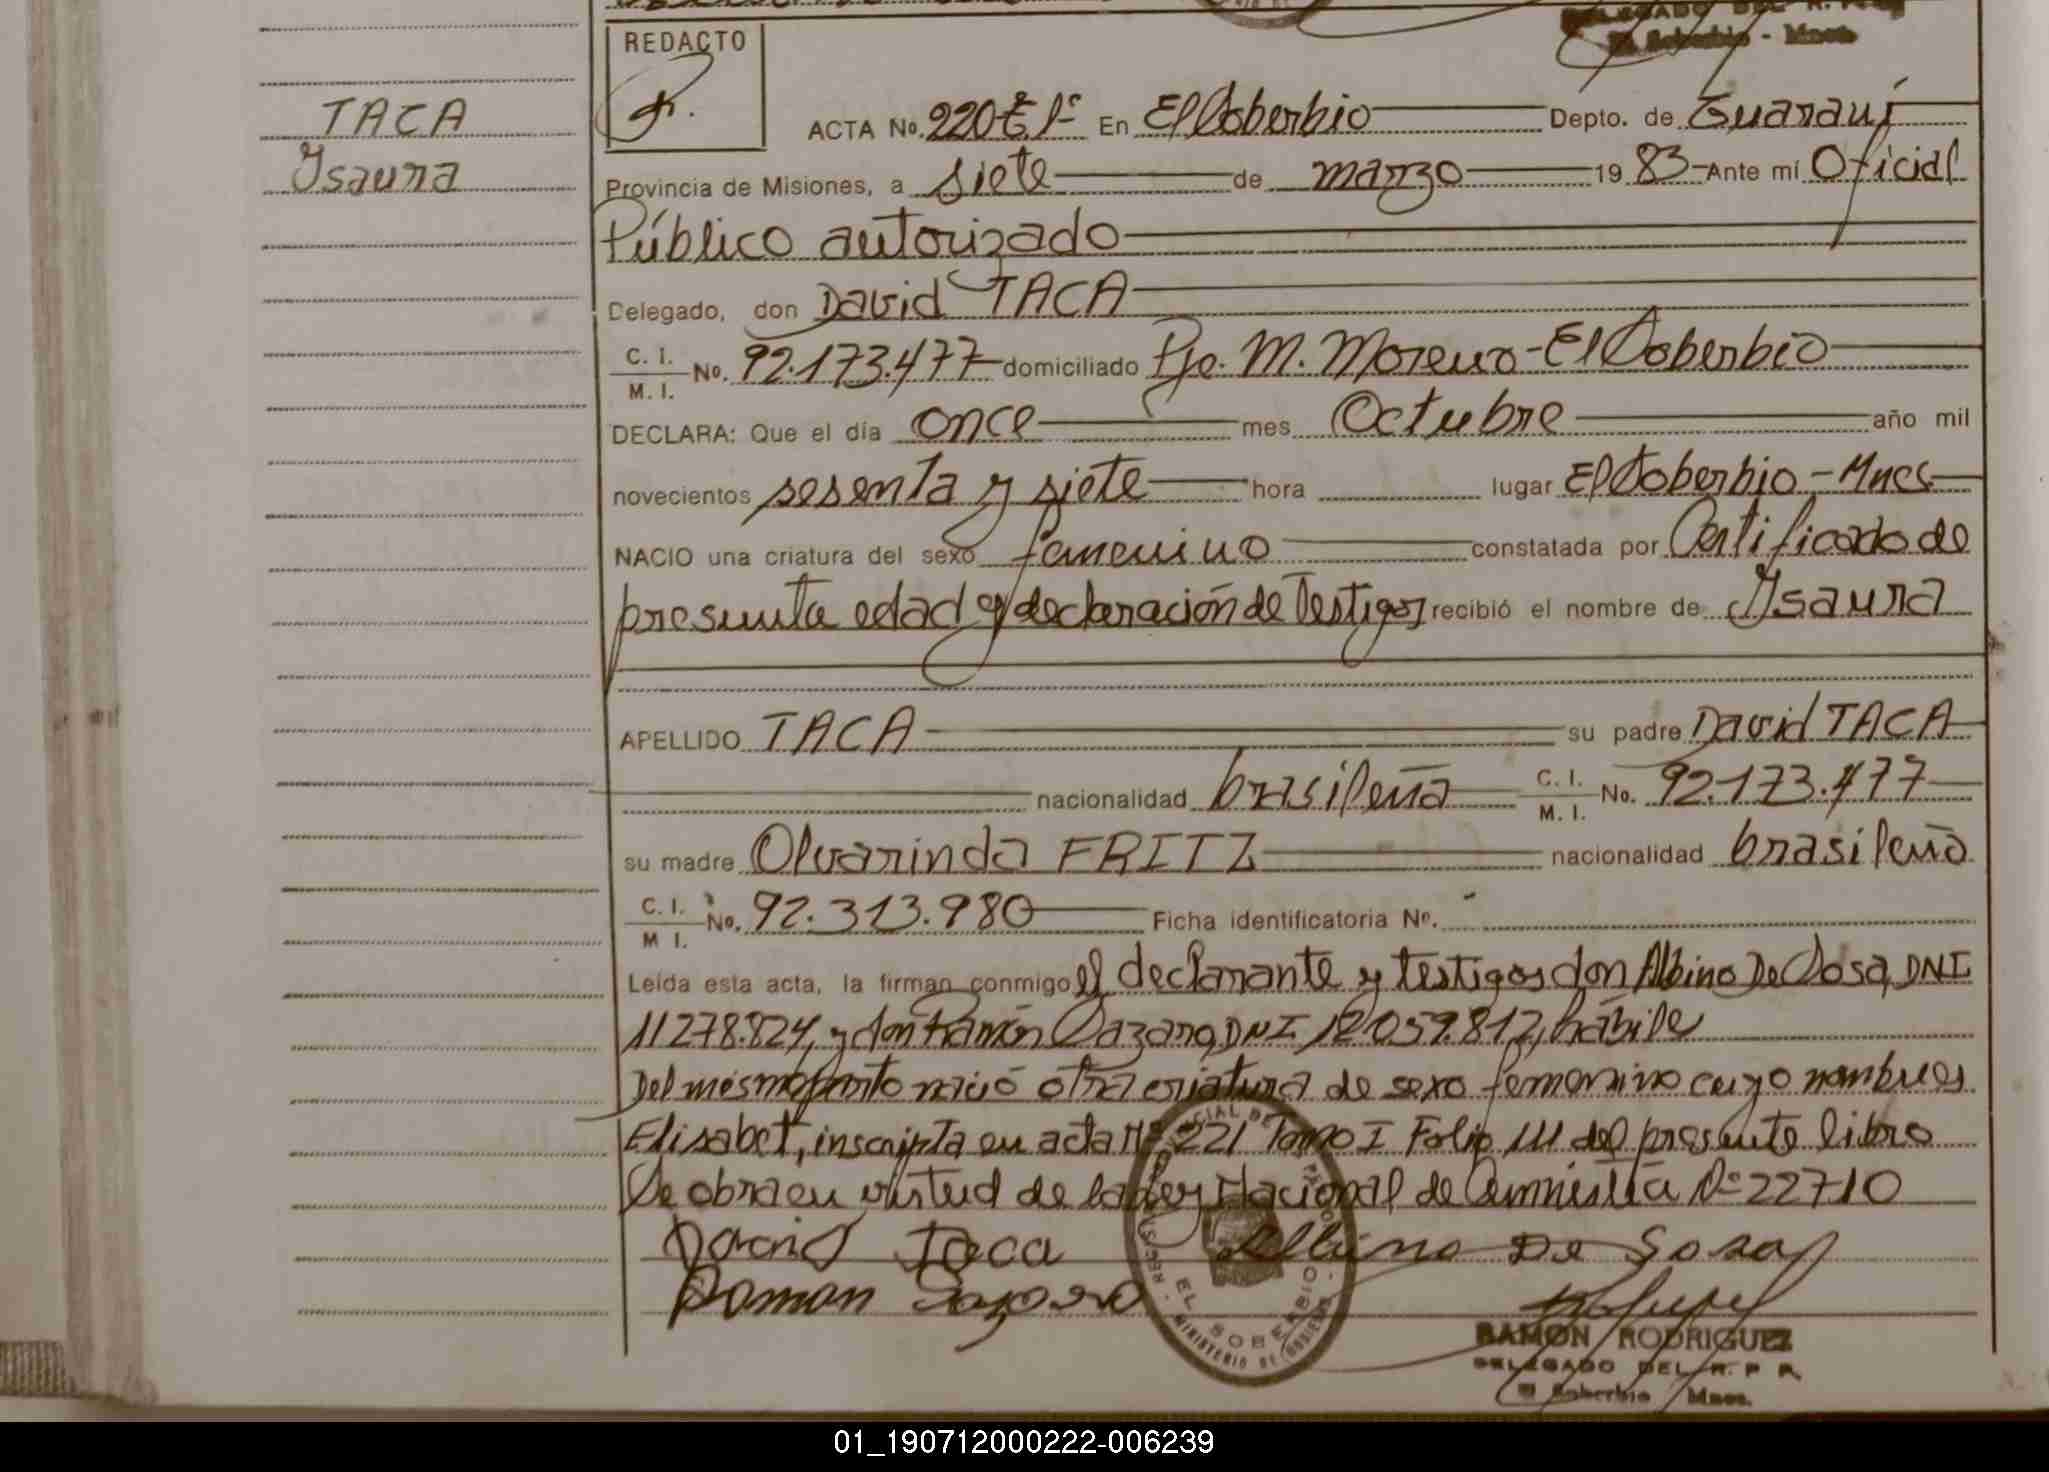 DELEGADO DEL R. P. P.
El Soberbio - Mnes.
REDACTO
TACA
Ysaura
ACTA No. 220 Tº 1º En El Soberbio Depto. de Guaraní
Provincia de Misiones, a siete de marzo 19 83 Ante mí Oficial
Público autorizado
Delegado, don David TACA
C. I.
M. I. No. 92.173.477 domiciliado Pje. M. Moreno - El Soberbio
DECLARA: Que el día once mes Octubre año mil
novecientos sesenta y siete hora lugar El Soberbio - Mnes
NACIO una criatura del sexo femenino constatada por Certificado de
presunta edad y declaración de Testigos recibió el nombre de Ysaura
APELLIDO TACA su padre David TACA
nacionalidad brasileña C. I.
M. I. No. 92.173.477
su madre Olvarinda FRITZ nacionalidad brasileña
C. I.
M I. No. 92.313.980 Ficha identificatoria Nº.
Leída esta acta, la firman conmigo el declarante y testigos don Albino De Sosa, DNI
11278.824, y don Ramón Cazaro, DNI 12059.812, hábile
Del mismo parto nació otra criatura de sexo femenino cuyo nombre es
Elisabet, inscripta en acta Nº 221 Tomo I Folio 111 del presente libro
Se obra en virtud de la Ley Nacional de Amnistía Nº 22710
David Taca Albino De Sosa
Ramon
EL SOBERBIO
MINISTERIO DE GOBIERNO
RAMON RODRIGUEZ
DELEGADO DEL R. P. P.
El Soberbio Mnes.
01_190712000222-006239